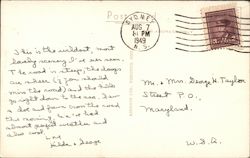 Post
SYDNEY
AUG 7
81 PM
1949
N.S.
This is the wildest, most
lovely scenery I've ever seen.
The road is steep, the drops
are sheer (if you should
miss the road) and the hills
go right down to the sea. Saw
a doe and fawn from the road
this morning. We've had
almost perfect weather and
also cool
Love
Hilda & George
Mr. & Mrs. George H. Taylor
Street P.O.,
Maryland.
U.S.A.